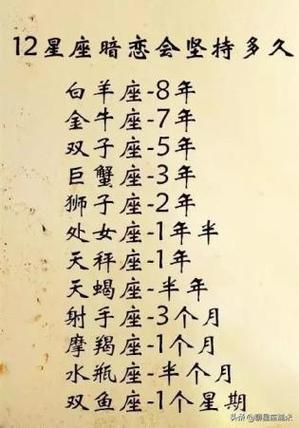 12星座暗恋会坚持多久
白羊座-8年
金牛座-7年
双子座-5年
巨蟹座-3年
狮子座-2年
处女座-1年半
天秤座-1年
天蝎座-半年
射手座-3个月
摩羯座-1个月
水瓶座-半个月
双鱼座-1个星期